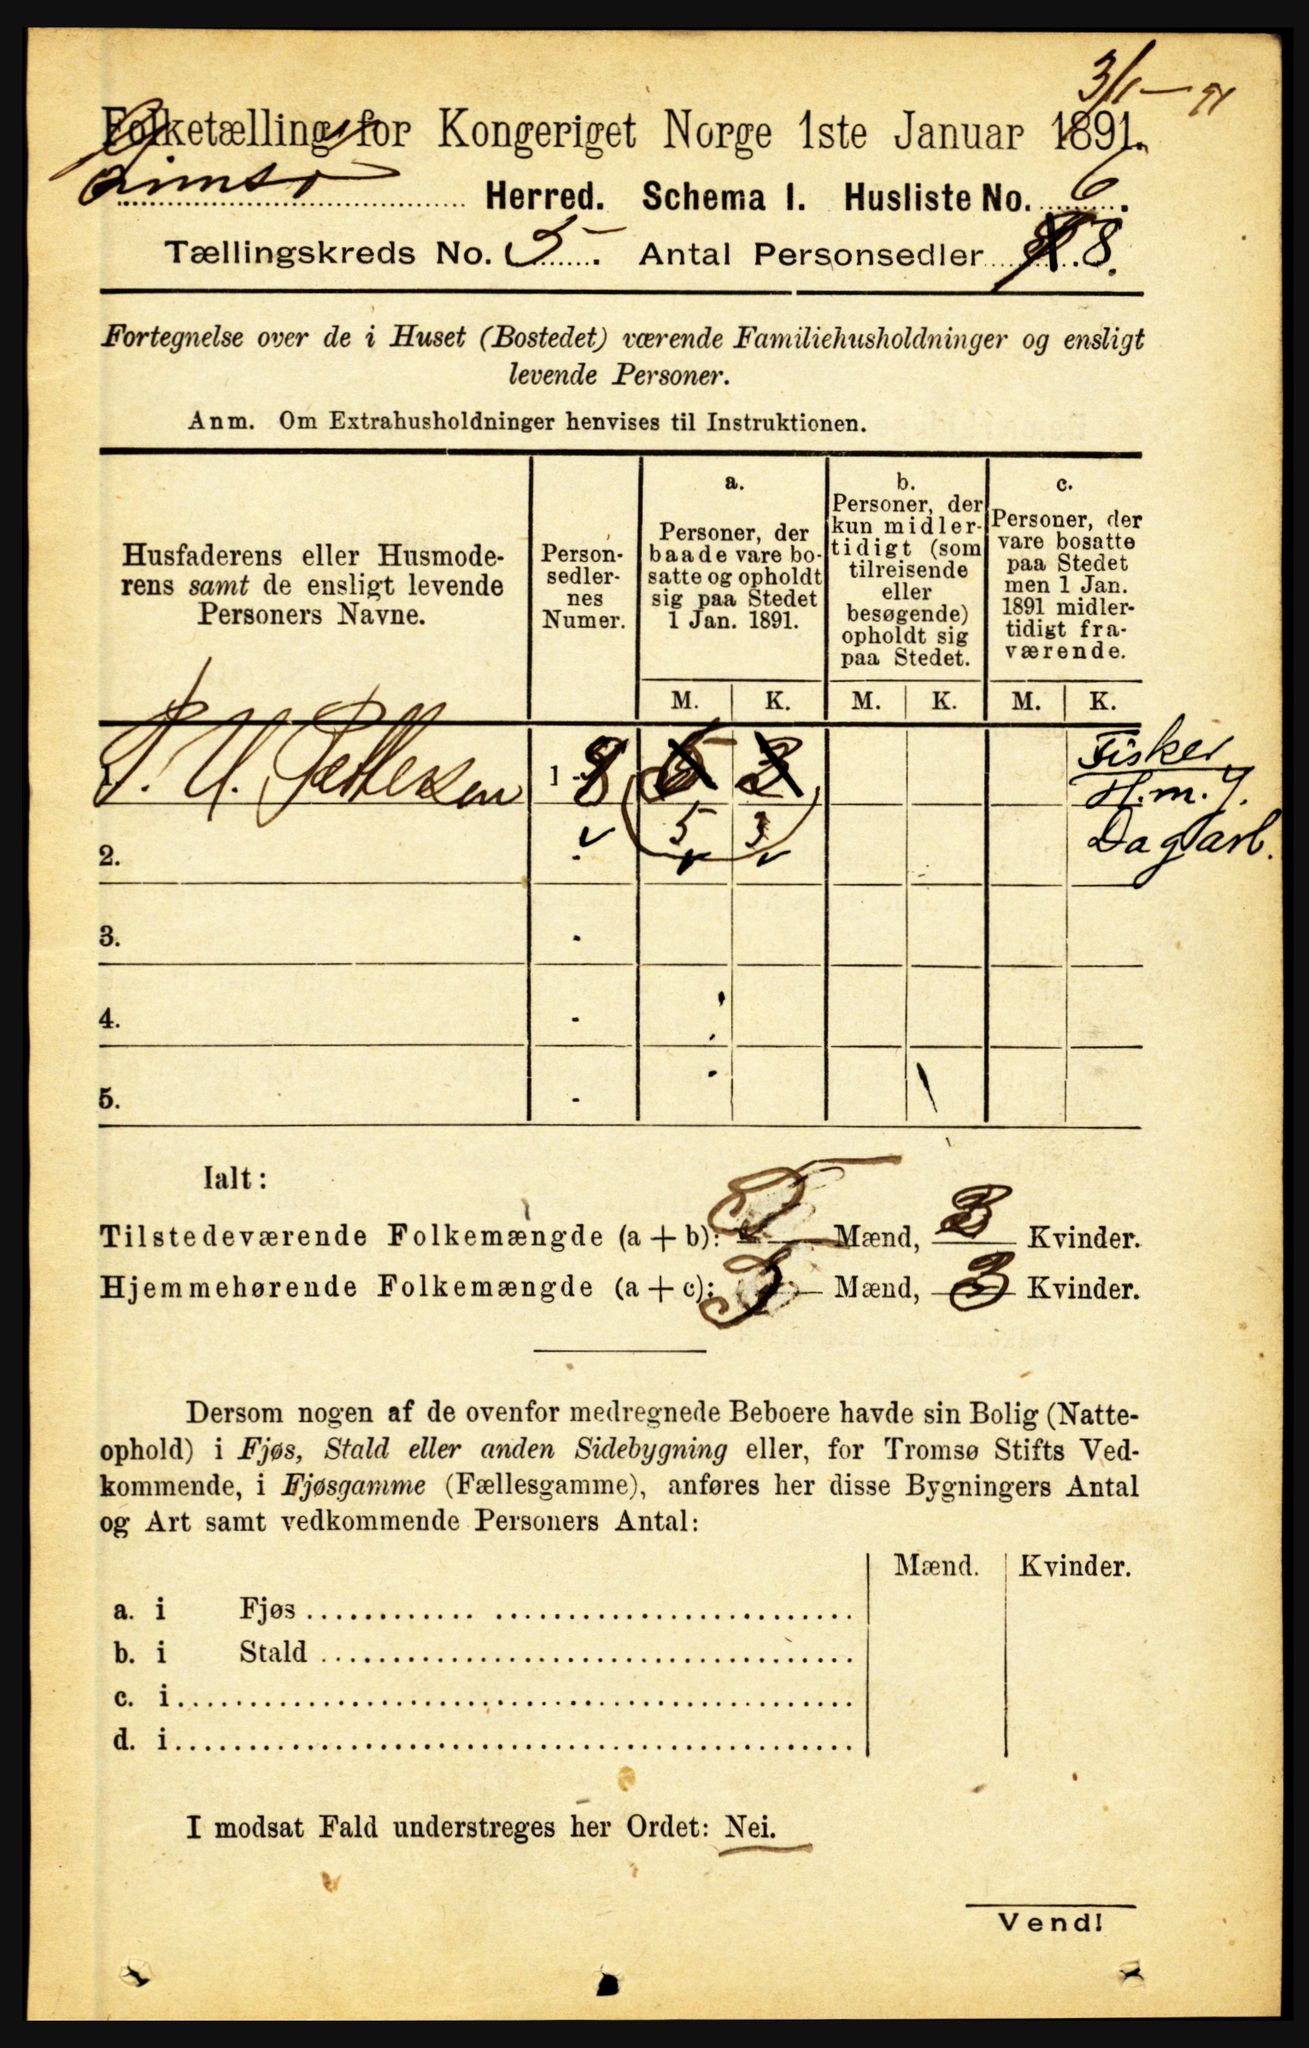 3/1 - 91
Folketælling for Kongeriget Norge 1ste Januar 1891.
Gimsø Herred. Schema I. Husliste No. 6.
Tællingskreds No. 5. Antal Personsedler 8.
Fortegnelse over de i Huset (Bostedet) værende Familiehusholdninger og ensligt
levende Personer.
Anm. Om Extrahusholdninger henvises til Instruktionen.
Husfaderens eller Husmode-
rens samt de ensligt levende
Personers Navne.
Person-
sedler-
nes
Numer.
a.
Personer, der
baade vare bo-
satte og opholdt
sig paa Stedet
1 Jan. 1891.
b.
Personer, der
kun midler-
tidigt (som
tilreisende
eller
besøgende)
opholdt sig
paa Stedet.
c.
Personer, der
vare bosatte
paa Stedet
men 1 Jan.
1891 midler-
tidigt fra-
værende.
M. K. M. K. M. K.
P. U. Pettersen 1 - 8 5 3 Fisker
H.m.J.
5 3 Dagarb.
2.
3. -
4. -
5. -
Ialt:
Tilstedeværende Folkemængde (a + b): 5 Mænd, 3 Kvinder.
Hjemmehørende Folkemængde (a + c): 5 Mænd, 3 Kvinder.
Dersom nogen af de ovenfor medregnede Beboere havde sin Bolig (Natte-
ophold) i Fjøs, Stald eller anden Sidebygning eller, for Tromsø Stifts Ved-
kommende, i Fjøsgamme (Fællesgamme), anføres her disse Bygningers Antal
og Art samt vedkommende Personers Antal:
Mænd. Kvinder.
a. i Fjøs
b. i Stald
c. i
d. i
I modsat Fald understreges her Ordet: Nei.
Vend!